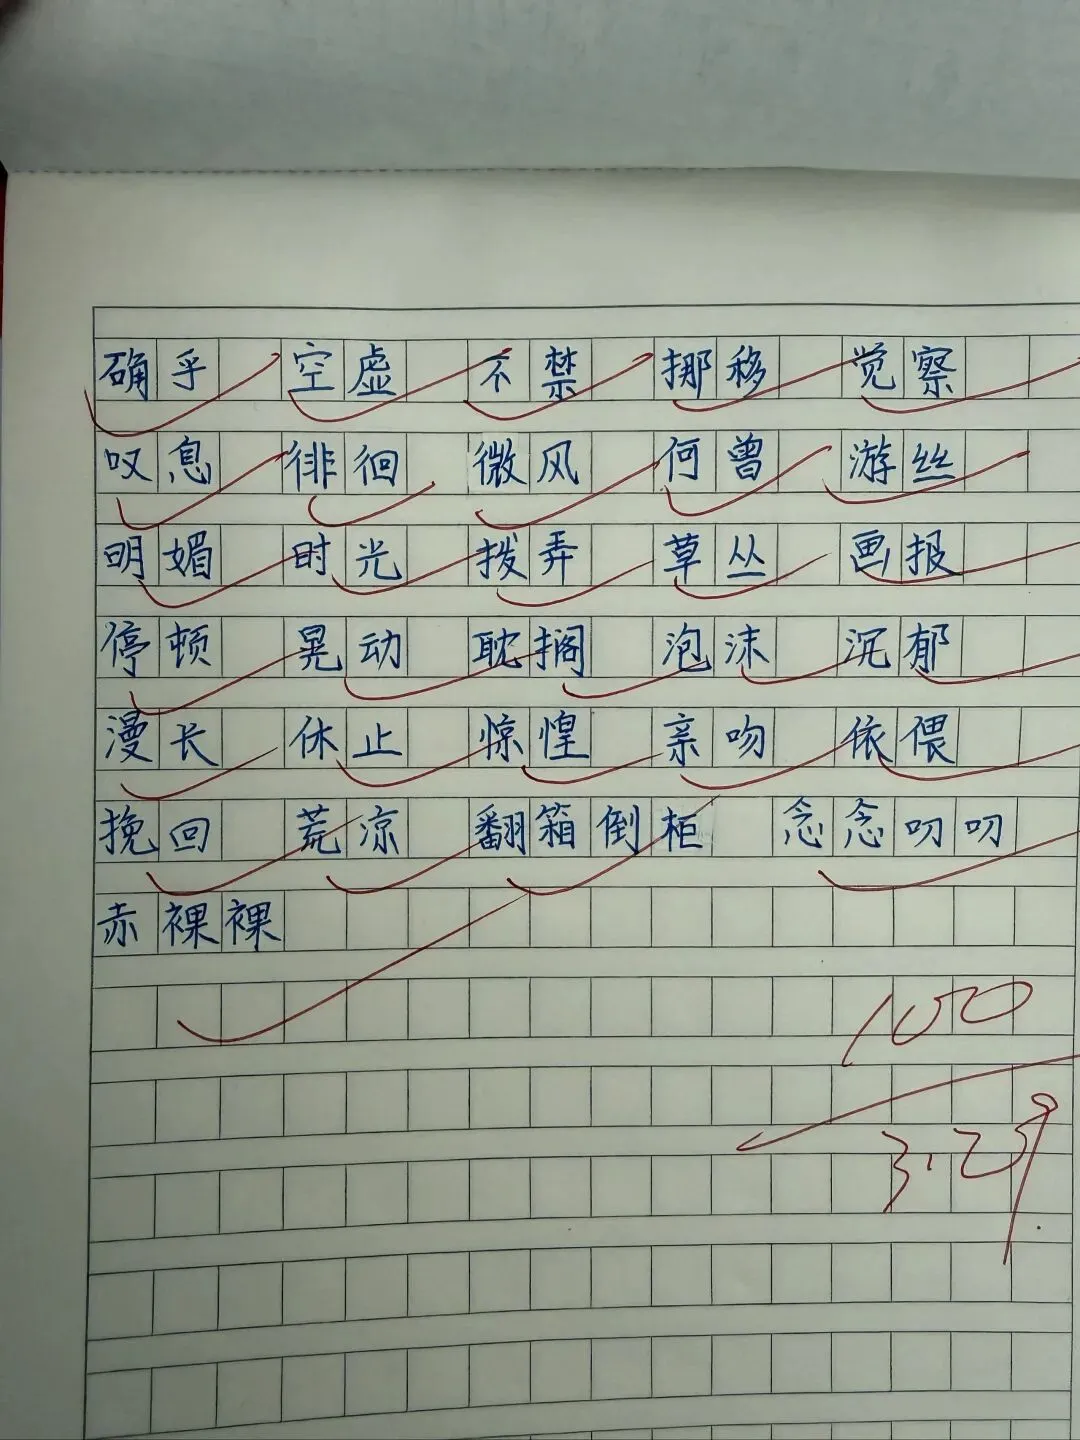 确乎 空虚 不禁 挪移 觉察
叹息 徘徊 微风 何曾 游丝
明媚 时光 拨弄 草丛 画报
停顿 晃动 耽搁 泡沫 沉郁
漫长 休止 惊惶 亲吻 依偎
挽回 荒凉 翻箱倒柜 念念叨叨
赤裸裸
100
3.29.